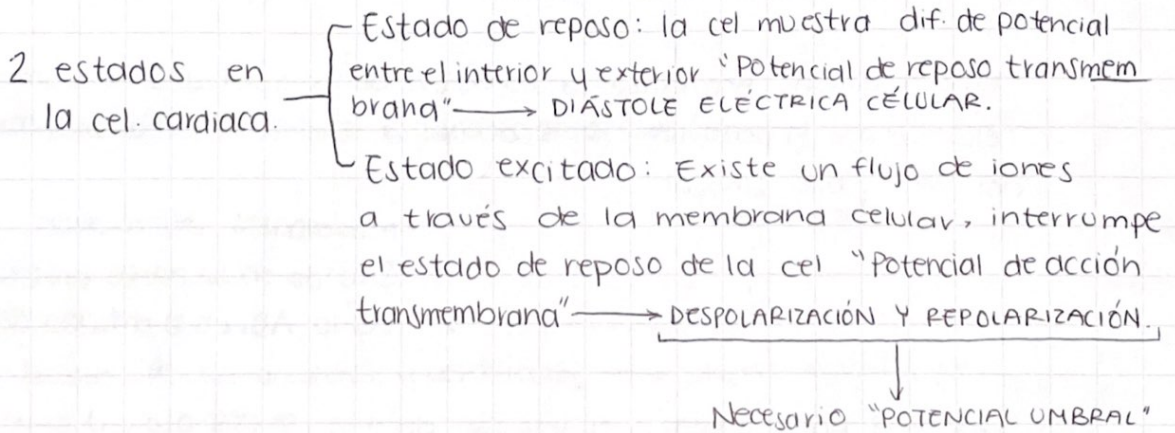 2 estados en
la cel. cardiaca.
Estado de reposo: la cel muestra dif. de potencial
entre el interior y exterior "Potencial de reposo transmem
brana" → DIÁSTOLE ELÉCTRICA CÉLULAR.
Estado excitado: Existe un flujo de iones
a través de la membrana celular, interrumpe
el estado de reposo de la cel "Potencial de acción
transmembrana" → DESPOLARIZACIÓN Y REPOLARIZACIÓN.
Necesario "POTENCIAL UMBRAL"